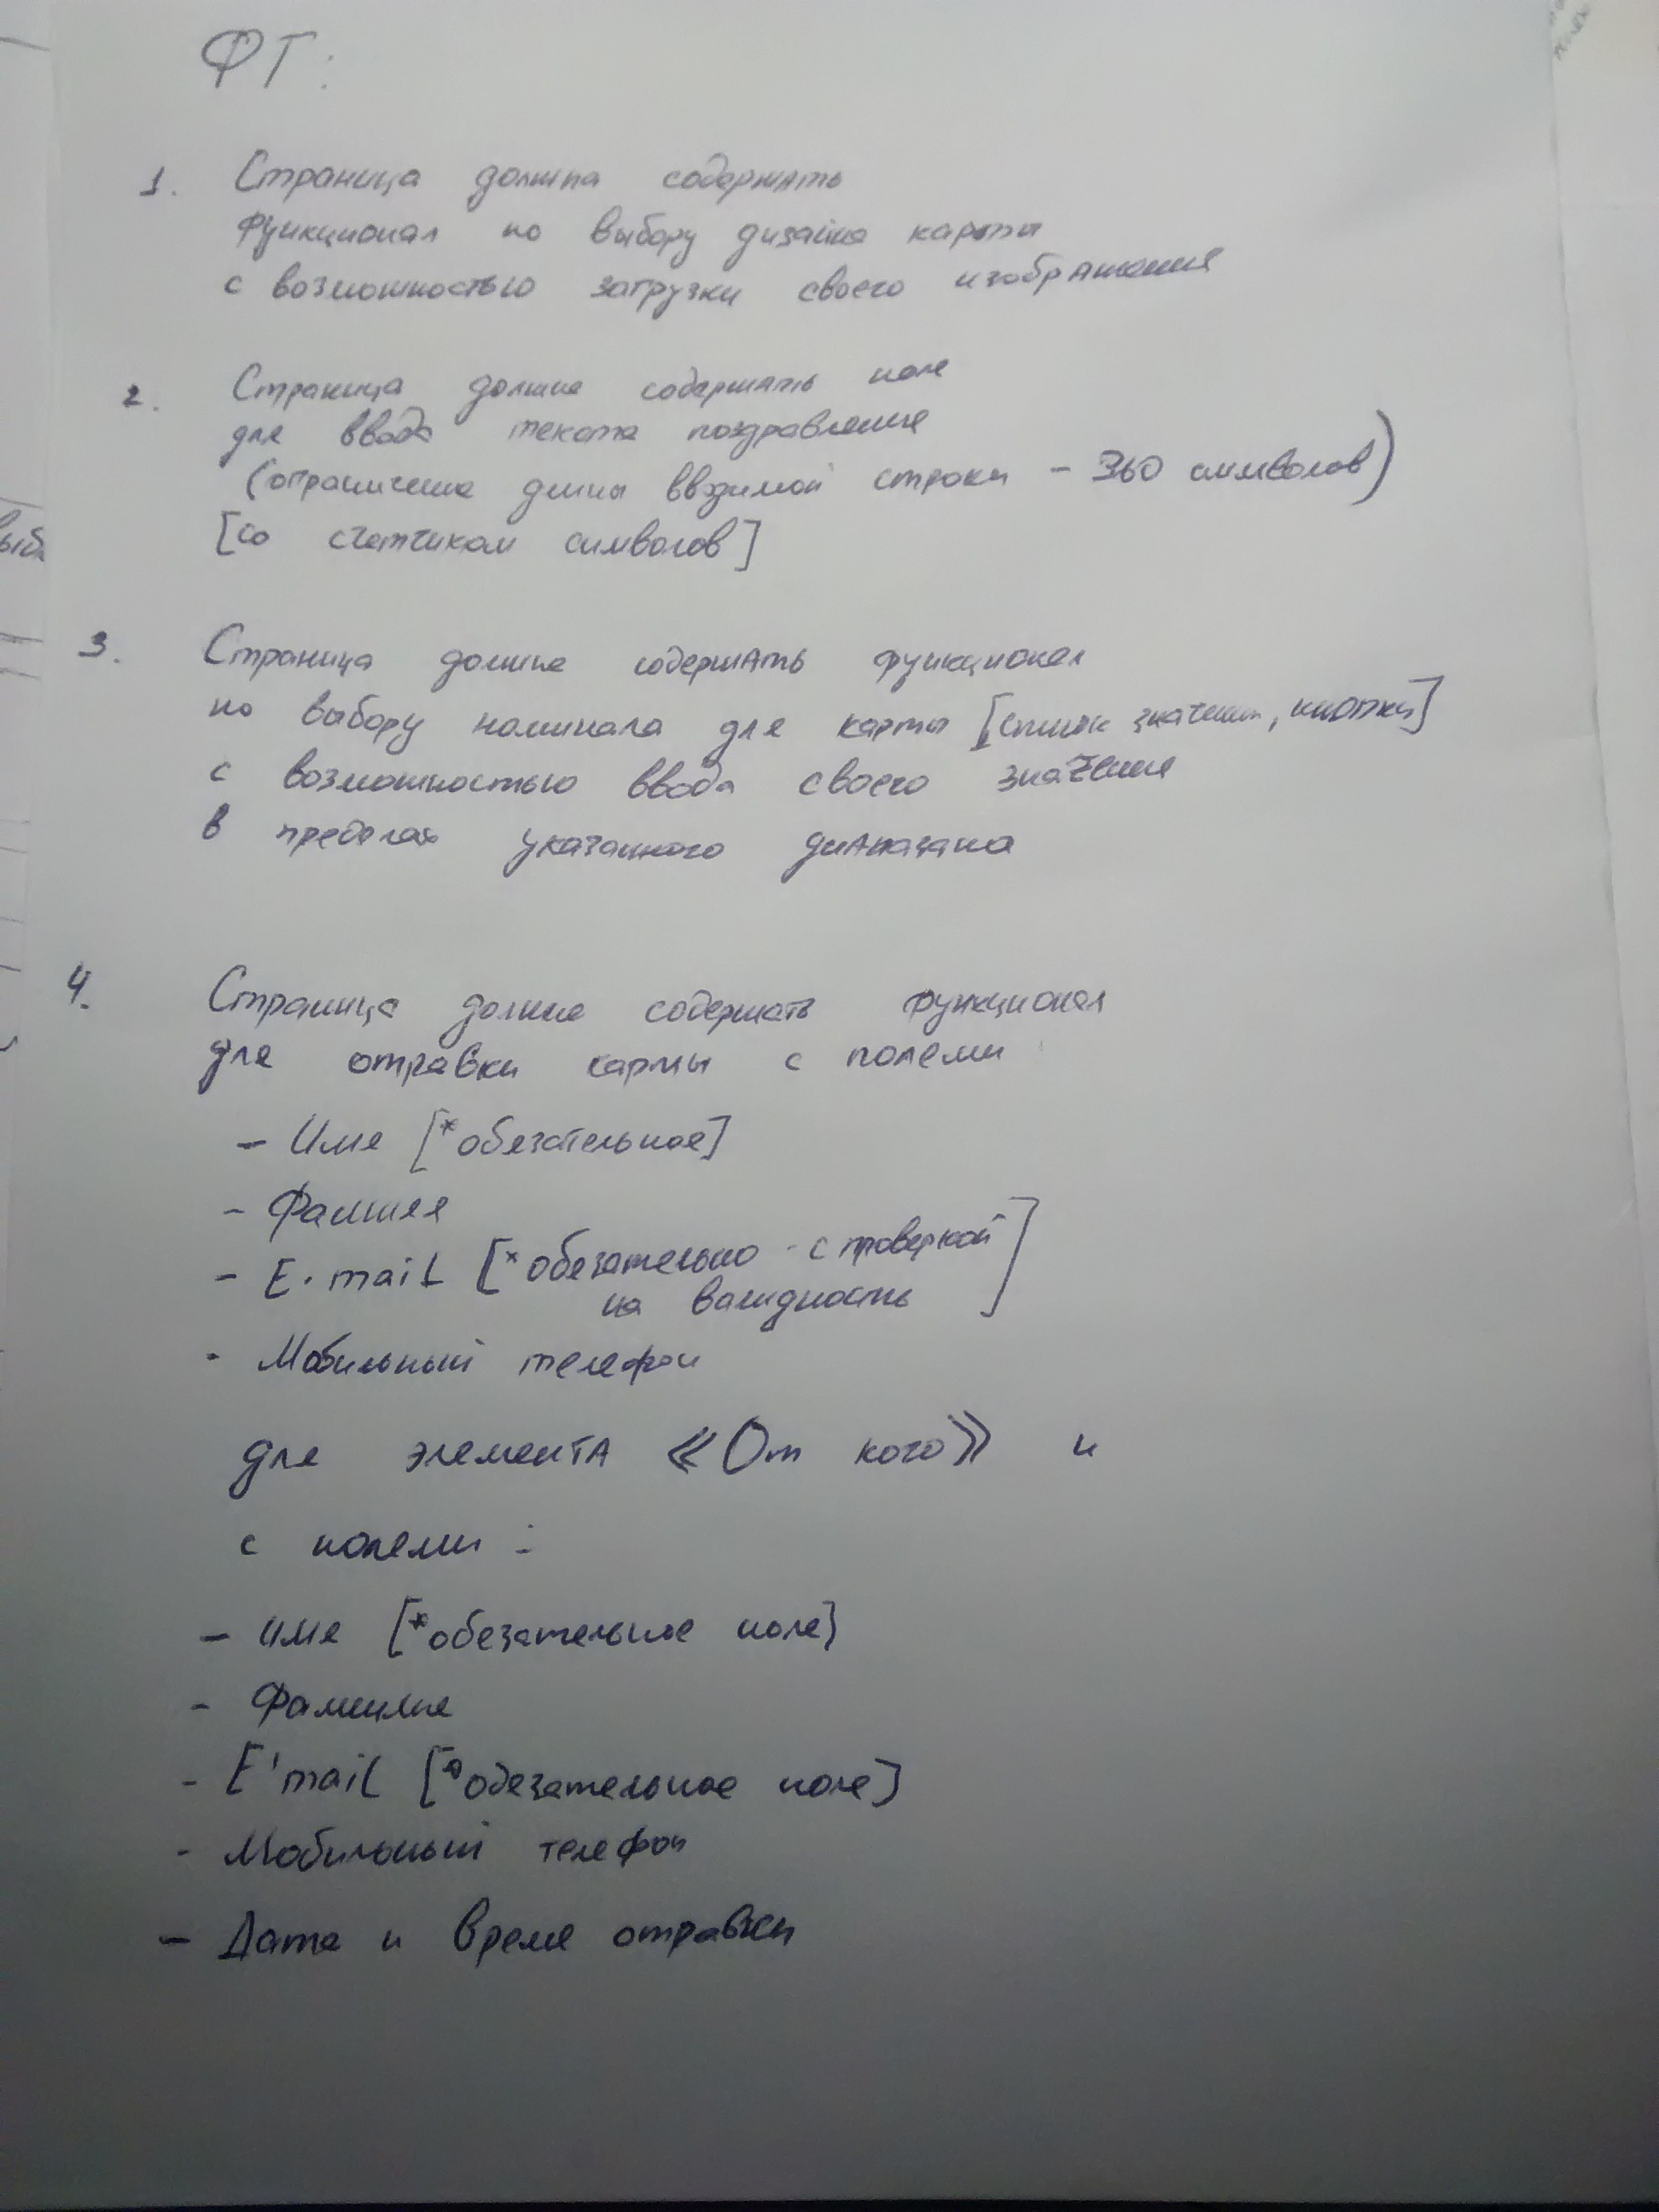 ФТ:
1. Страница должна содержать
функционал по выбору дизайна карты
с возможностью загрузки своего изображения
2. Страница должна содержать поле
для ввода текста поздравления
(ограничение длины вводимой строки - 360 символов)
[со счетчиком символов]
3. Страница должна содержать функционал
по выбору номинала для карты [список значений, кнопки]
с возможностью ввода своего значения
в пределах указанного диапазона
4. Страница должна содержать функционал
для отправки карты с полями
- Имя [*обязательное]
- Фамилия
- E-mail [*обязательно - с проверкой
на валидность]
- Мобильный телефон
для элемента «От кого» и
с полями:
- имя [*обязательное поле]
- Фамилия
- E'mail [*обязательное поле]
- Мобильный телефон
- Дата и время отправки